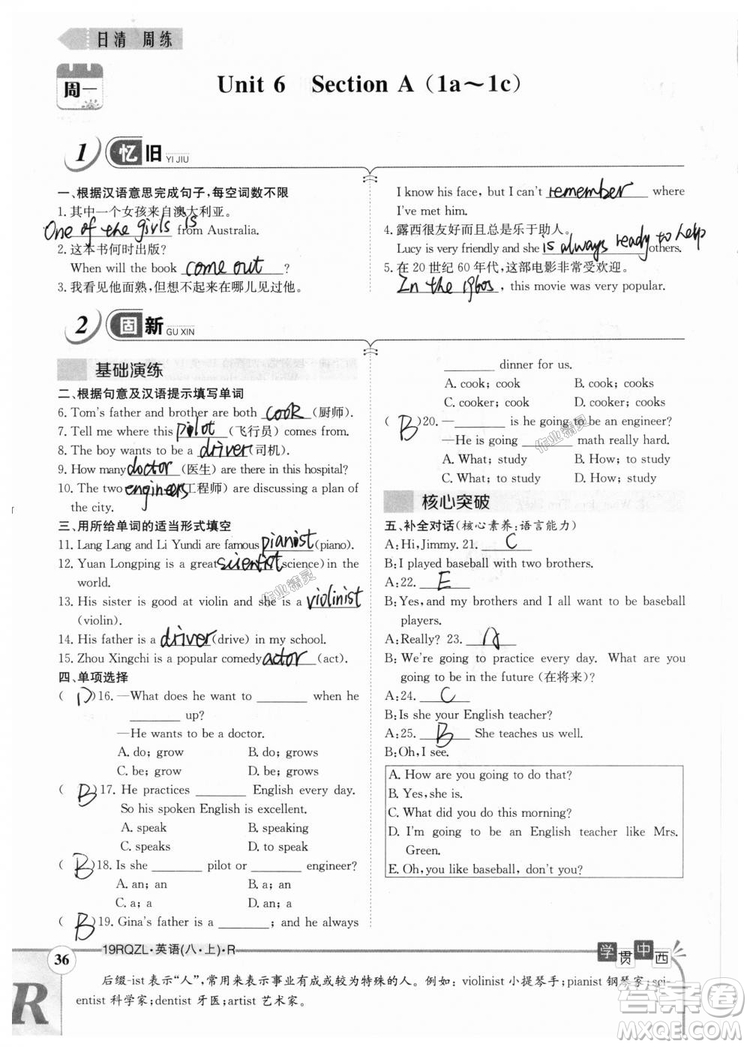 日清 周练
周一
Unit 6 Section A（1a～1c）
1 忆旧 YI JIU
一、根据汉语意思完成句子,每空词数不限
1. 其中一个女孩来自澳大利亚。
One of the girls is from Australia.
2. 这本书何时出版?
When will the book come out ?
3. 我看见他面熟,但想不起来在哪儿见过他。
I know his face, but I can't remember where
I've met him.
4. 露西很友好而且总是乐于助人。
Lucy is very friendly and she is always ready to help others.
5. 在 20 世纪 60 年代,这部电影非常受欢迎。
In the 1960s , this movie was very popular.
2 固新 GU XIN
基础演练
二、根据句意及汉语提示填写单词
6. Tom's father and brother are both cook (厨师).
7. Tell me where this pilot (飞行员) comes from.
8. The boy wants to be a driver (司机).
9. How many doctor (医生) are there in this hospital?
10. The two engineers (工程师) are discussing a plan of
the city.
三、用所给单词的适当形式填空
11. Lang Lang and Li Yundi are famous pianist (piano).
12. Yuan Longping is a great scientist (science) in the
world.
13. His sister is good at violin and she is a violinist
(violin).
14. His father is a driver (drive) in my school.
15. Zhou Xingchi is a popular comedy actor (act).
四、单项选择
( D )16. —What does he want to ________ when
________ up?
—He wants to be a doctor.
A. do; grow B. do; grows
C. be; grow D. be; grows
( B )17. He practices ________ English every day.
So his spoken English is excellent.
A. speak B. speaking
C. to speak D. speaks
( B )18. Is she ________ pilot or ________ engineer?
A. an; an B. a; an
C. an; a D. a; a
( B )19. Gina's father is a ________ and he always
________ dinner for us.
A. cook; cook B. cook; cooks
C. cooker; cook D. cooker; cooks
( B )20. —________ is he going to be an engineer?
—He is going ________ math really hard.
A. What; study B. How; to study
C. How; study D. What; to study
核心突破
五、补全对话(核心素养:语言能力)
A: Hi, Jimmy. 21. C
B: I played baseball with two brothers.
A: 22. E
B: Yes, and my brothers and I all want to be baseball
players.
A: Really? 23. A
B: We're going to practice every day. We're going to
be the best in the future (在将来)!
A: 24. C
B: Is she your English teacher?
A: 25. B She teaches us well.
B: Oh, I see.
A. How are you going to do that?
B. Yes, she is.
C. What did you do this morning?
D. I'm going to be an English teacher like Mrs.
Green.
E. Oh, you like baseball, don't you?
36
19RQZL·英语(八·上)·R
学贯中西
后缀-ist表示“人”,常用来表示事业有成或较为特殊的人。例如: violinist 小提琴手; pianist 钢琴家; sci-
entist 科学家; dentist 牙医; artist 艺术家。
R
作业精灵
作业精灵
答案圈
MXQE.COM